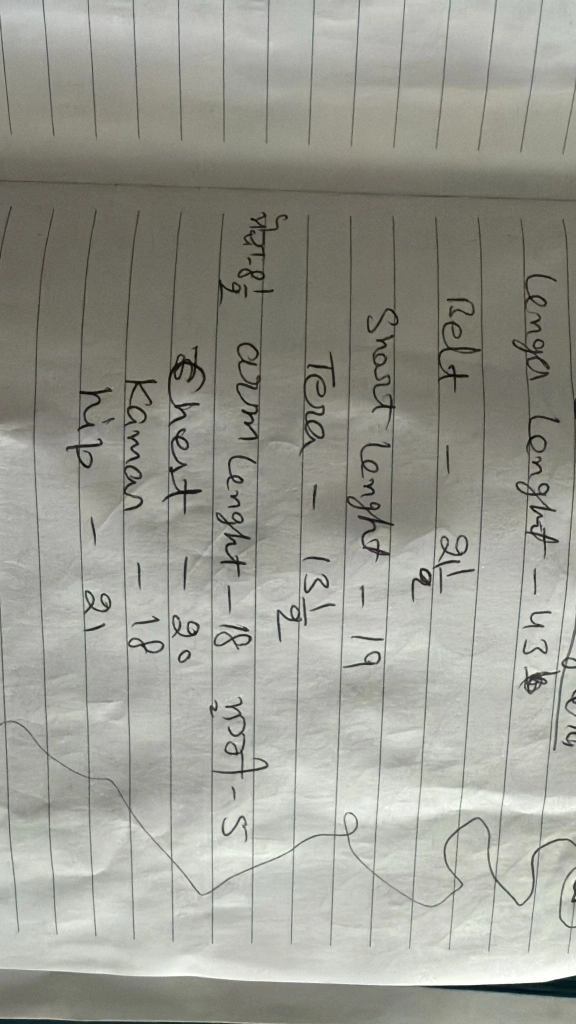 Lenga Lenght - 43
Belt - 21 1/2
Shart Lenght - 19
Tera - 13 1/2
arm Lenght - 18
Chest - 20
Kamar - 18
hip - 21